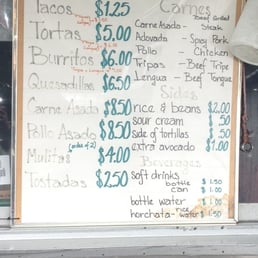 Tacos $1.25
Tortas $5.00
Burritos $6.00
Quesadillas $6.50
Carne Asada $8.50
Pollo Asado $8.50
(order of 2)
Mulitas $4.00
Tostadas $2.50
Carnes
Beef Grilled
Carne Asada - Steak
Adovada - Spicy Pork
Pollo - Chicken
Tripas - Beef Tripe
Lengua - Beef Tongue
Sides
rice & beans $2.00
sour cream $ .50
side of tortillas $ .50
extra avocado $1.00
Beverages
soft drinks
bottle $ 1.50
can $ 1.00
bottle water $ 1.00
horchata - rice water $ 1.50